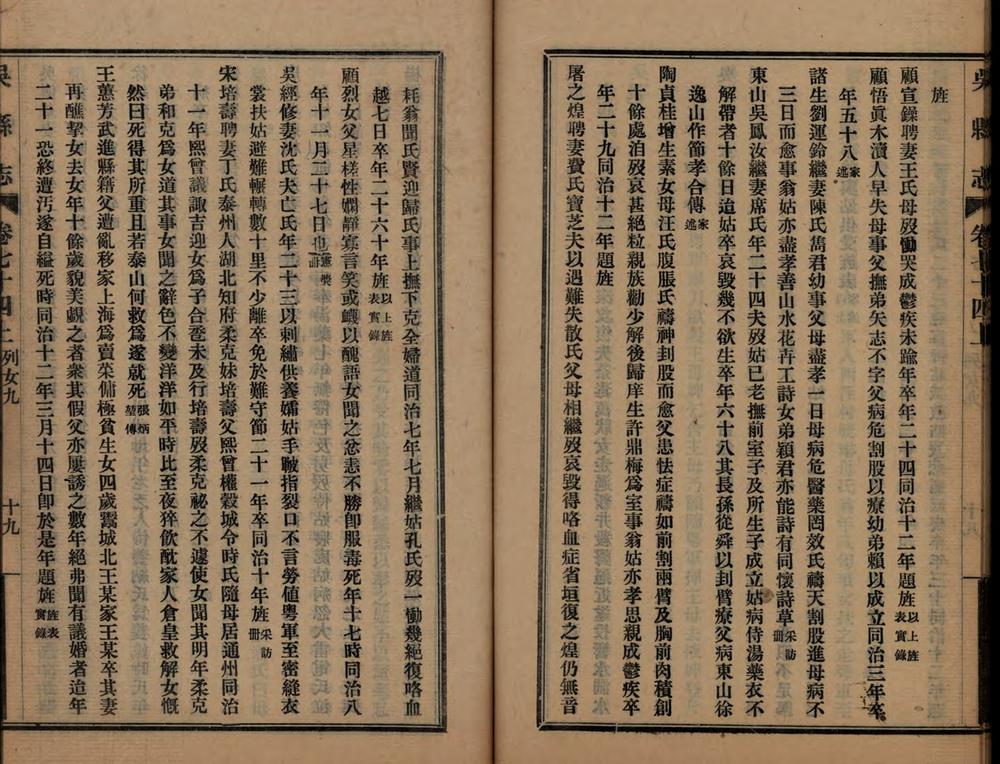 旌
顧宣鑅聘妻王氏母歿慟哭成鬱疾未踰年卒年二十四同治十二年題旌以上旌表實錄
顧悟真木瀆人早失母事父撫弟矢志不字父病危割股以療幼弟賴以成立同治三年卒
年五十八家述
諸生劉運鈴繼妻陳氏雋君幼事父母盡孝一日母病危醫藥罔效氏禱天割股進母病不
三日而愈事翁姑亦盡孝善山水花卉工詩女弟穎君亦能詩有同懷詩草采訪冊
東山吳鳳汝繼妻席氏年二十四夫歿姑已老撫前室子及所生子成立姑病侍湯藥衣不
解帶者十餘日迨姑卒哀毀幾不欲生卒年六十八其長孫從舜以刲臂療父病東山徐
逸山作節孝合傳家述
陶貞桂增生素女母汪氏腹脹氏禱神刲股而愈父患怯症禱如前割兩臂及胸前肉積創
十餘處洎歿哀甚絕粒親族勸少解後歸庠生許鼎梅爲室事翁姑亦孝思親成鬱疾卒
年二十九同治十二年題旌
屠之煌聘妻費氏寶芝夫以遇難失散氏父母相繼歿哀毀得咯血症省垣復之煌仍無音
耗翁聞氏賢迎歸氏事上撫下克全婦道同治七年七月繼姑孔氏歿一慟幾絕復咯血
越七日卒年二十六十年旌以上旌表實錄
顧烈女父星槎性嫻靜寡言笑或嶬以醜語女聞之忿恚不勝卽服毒死年十七時同治八
年十一月二十七日也
吳經修妻沈氏夫亡氏年二十三以刺繡供養孀姑手皸指裂口不言勞值粵軍至密縫衣
裳扶姑避難輾轉數十里不少離卒免於難守節二十一年卒同治十年旌采訪冊
宋培壽聘妻丁氏泰州人湖北知府柔克妹培壽父熙曾權穀城令時氏隨母居通州同治
十一年熙曾議諏吉迎女爲子合卺未及行培壽歿柔克祕之不遽使女聞其明年柔克
弟和克爲女道其事女聞之辭色不變洋洋如平時比至夜猝飲酖家人倉皇救解女慨
然曰死得其所重且若泰山何救爲遂就死張炳堃傳
王蕙芳武進縣籍父遭亂移家上海爲賣菜傭極貧生女四歲鬻城北王某家王某卒其妻
再醮挈女去女年十餘歲貌美覬之者衆其假父亦屢誘之數年絕弗聞有議婚者迨年
二十一恐終遭汚遂自縊死時同治十二年三月十四日卽於是年題旌旌表實錄
吳縣志
卷七十四上
列女九
十九